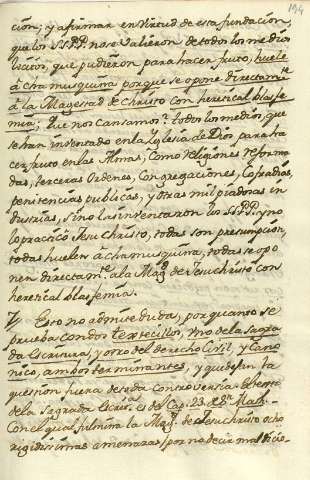 194
cion; y afirmar en virtud de esta fundacion,
que los SS.PP. no se valieron de todos los medios
licitos, que pudieron para hacer fruto, huele
à chamusquina porque se opone directamte
à la Magestad de Christo con heretical blasfe
mia; Que nos cansamos? todos los medios, que
se han inventado en la Iglesia de Dios para ha
cer fruto en las Almas, como religiones reforma
das, terceras Ordenes, Congregaciones, Cofradias,
penitencias publicas, y otras mil piadosas in
dustrias, sino las inventaron los SS.PP. y no
lo practicò Jesu Christo, todas son presumpcion,
todas huelen à chamusquina, todas se opo
nen directamte. a la Magd. de Jesu Christo con
heretical blasfemia.
7/ Esto no admite duda, por quanto se
prueba con dos textecillos, uno de la Sagra
da Escritura, y otro del derecho Civil, y Cano
nico, ambos terminantes, y que dejan la
question fuera de toda controversia. El texto
de la Sagrada Escrita. es del Cap. 23. de Sn. Math.
Con el qual fulmina la Magd. de Jesu Christo ocho
rigidissimas amenazas, (por no decir maldicio-